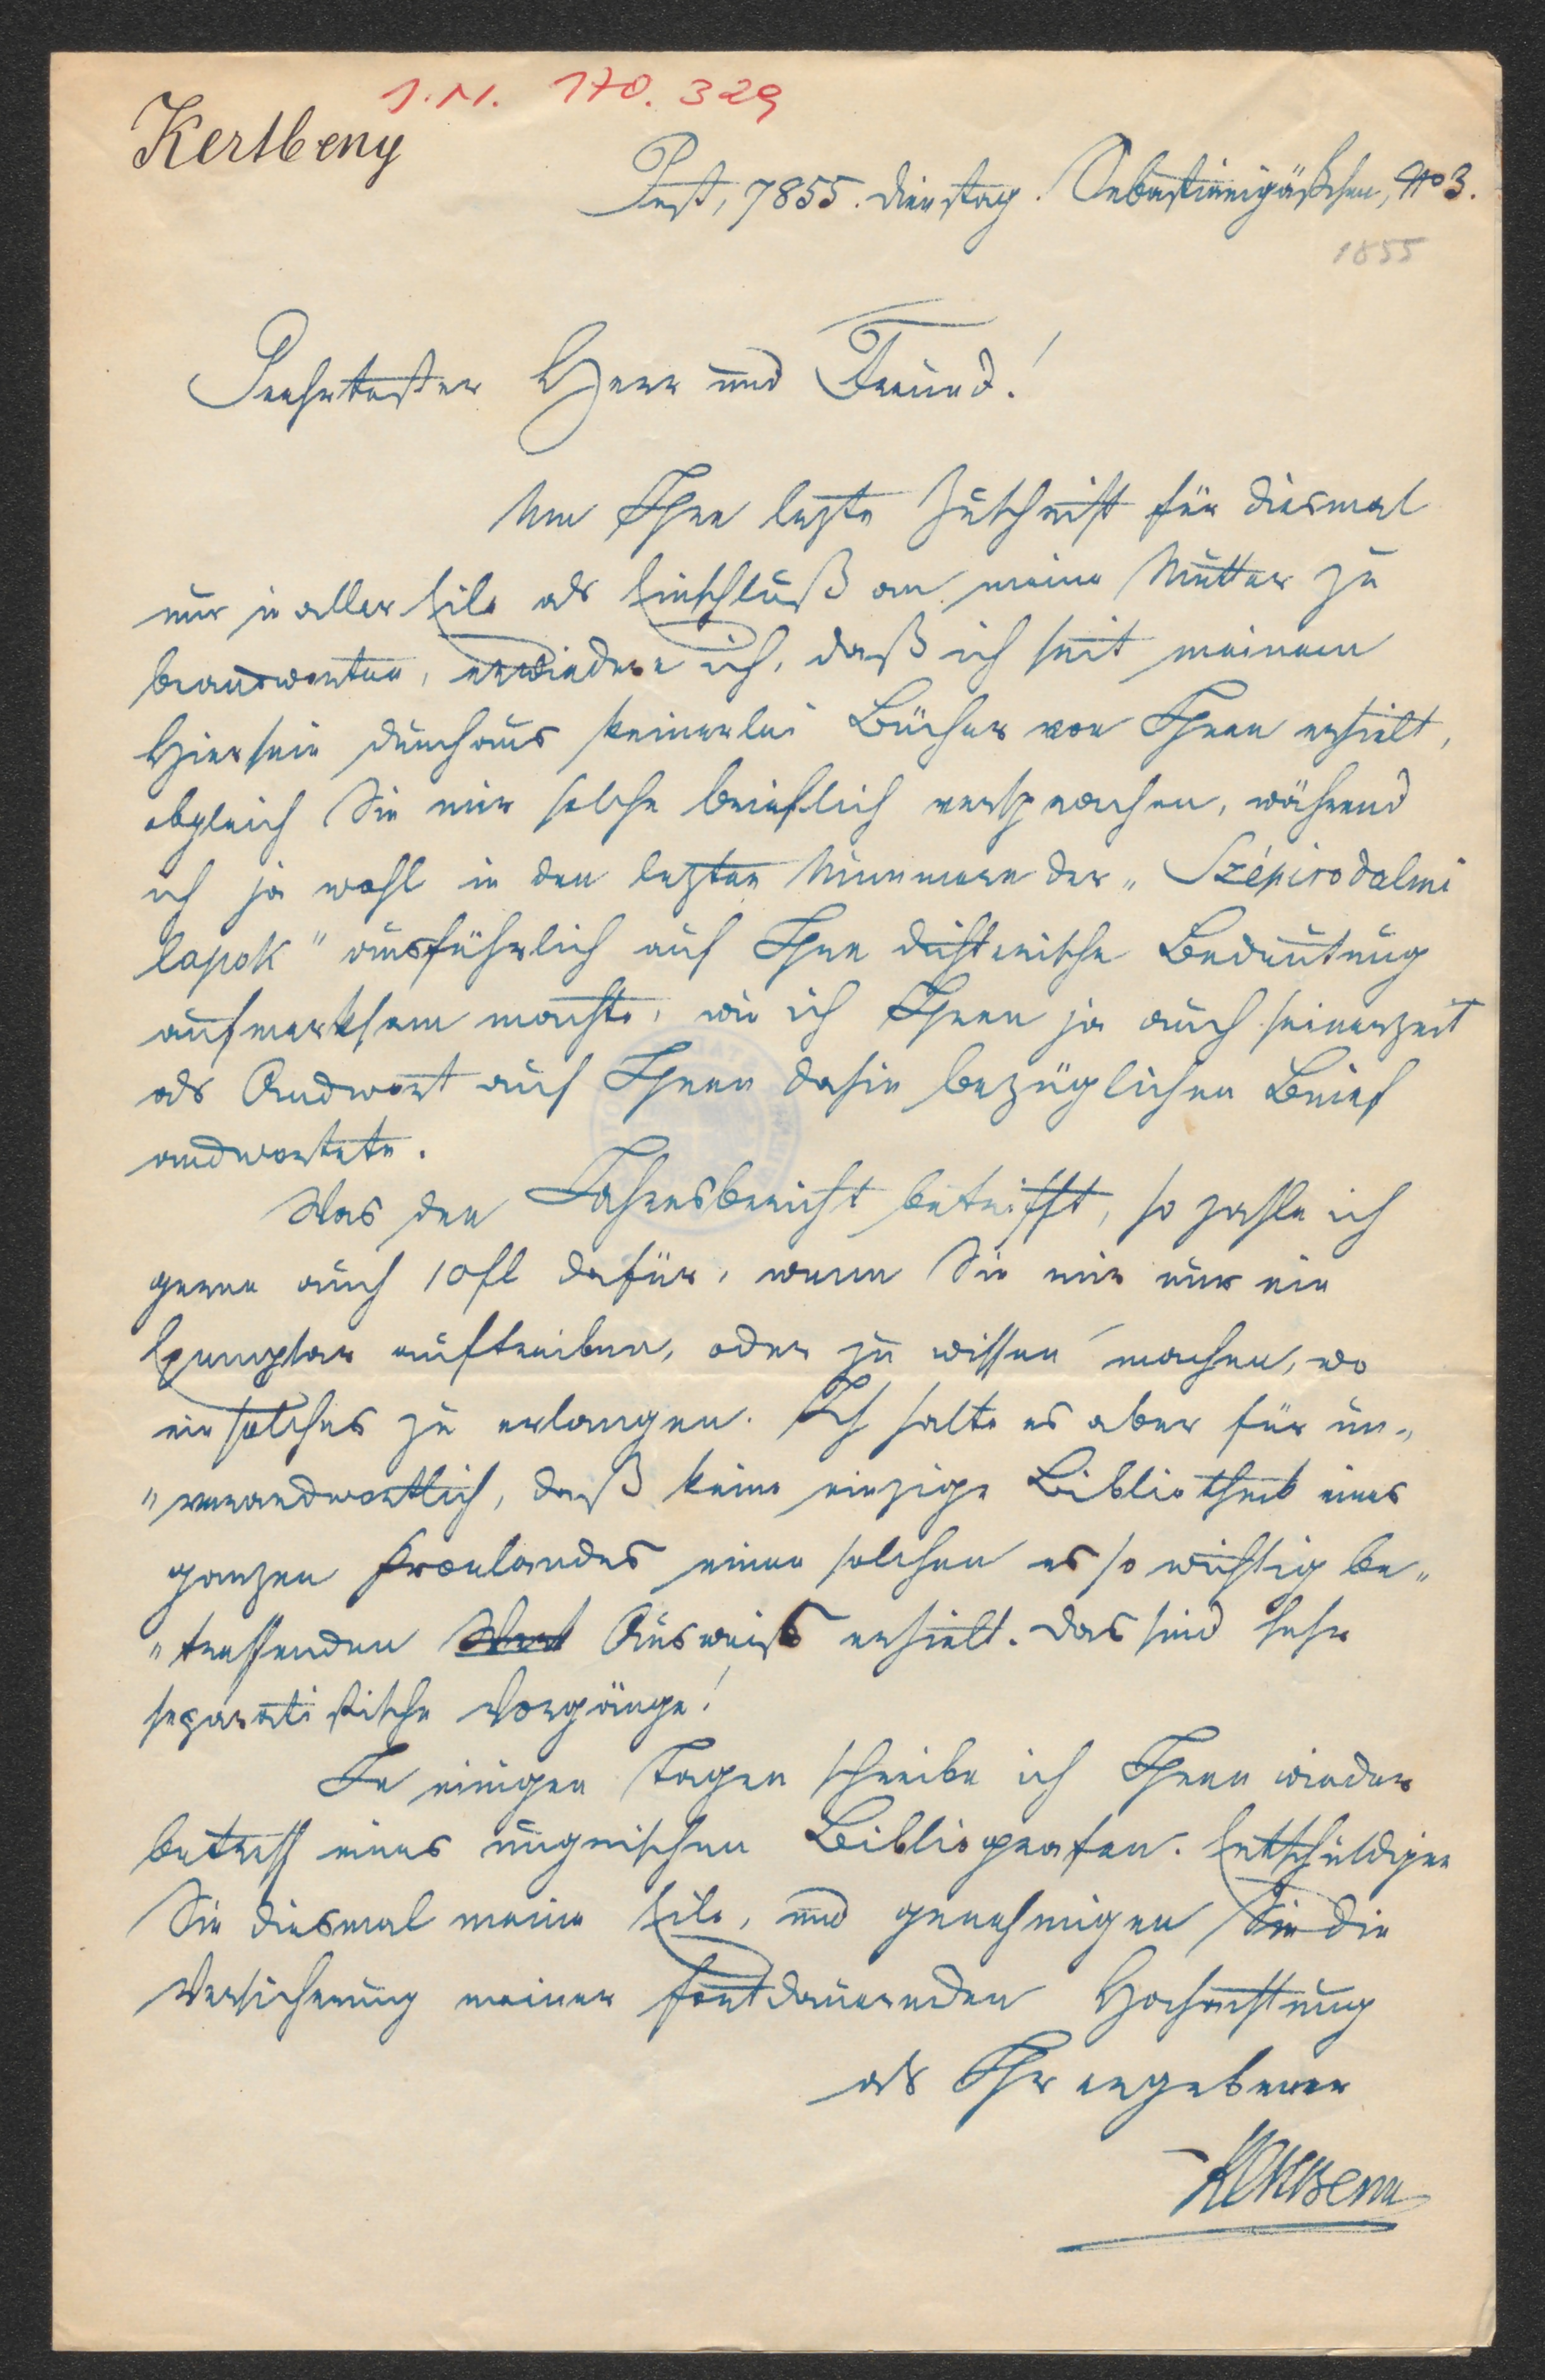 J.N. 170.329
Kertbeny
Pest, 1855. Dienstag. Sebastianigäßchen, No 3.
1855
Geehrtester Herr und Freund!
Um Ihre lezte Zuschrift für diesmal
nur in aller Eile als Einschluß an meine Mutter zu
beandworten, erwiedere ich, daß ich seit meinem
Hiersein durchaus keinerlei Bücher von Ihnen erhielt,
obgleich Sie mir solche brieflich versprachen, während
ich ja wohl in den lezten Nummern der „Szépirodalmi
lapok" ausführlich auf Ihre dichterische Bedeutung
aufmerksam machte, wie ich Ihnen ja auch seinerzeit
als Andwort auf Ihren dahin bezüglichen Brief
andwortete.
Was den Jahresbericht betrifft, so zahle ich
gerne auch 10fl dafür, wenn Sie mir nur ein
Exemplar auftreiben, oder zu wissen machen, wo
ein solches zu erlangen. Ich halte es aber für un-
„verandwortlich, daß keine einzige Bibliothek eines
ganzen Kronlandes einen solchen es so wichtig be„
„treffenden Ausweiß erhielt. Das sind sehr
separatistische Vorgänge!
In einigen Tagen schreibe ich Ihnen wieder
betreff eines ungrischen Bibliografen. Entschuldigen
Sie diesmal meine Eile, und genehmigen Sie die
Versicherung meiner fortdauernden Hochachtung
als Ihr ergebener
Kertbeny